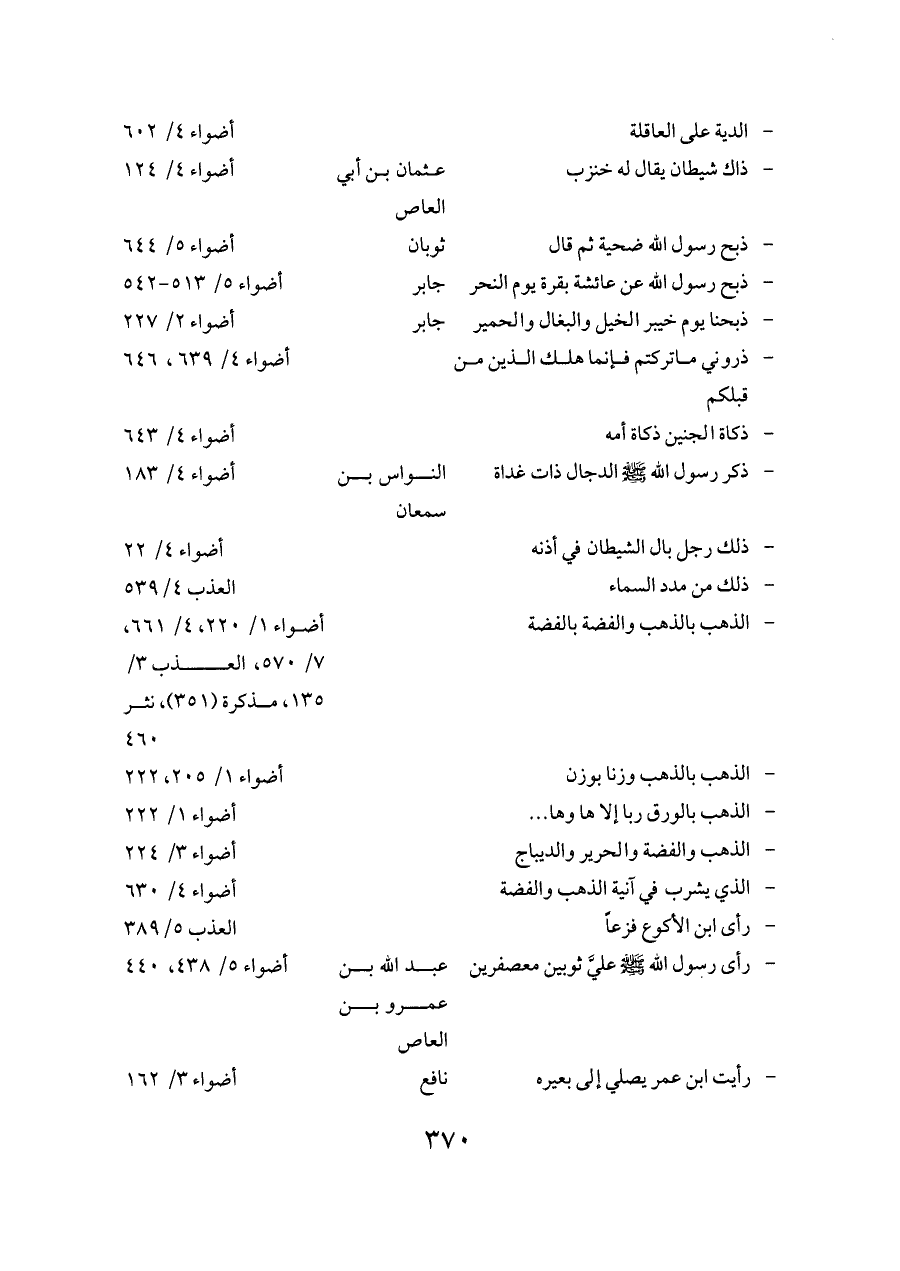 - الدية على العاقلة أضواء ٤/ ٦٠٢
- ذاك شيطان يقال له خنزب عـثمان بـن أبي أضواء ٤/ ١٢٤
العاص
- ذبح رسول الله ضحية ثم قال ثوبان أضواء ٥/ ٦٤٤
- ذبح رسول الله عن عائشة بقرة يوم النحر جابر أضواء ٥/ ٥١٣-٥٤٢
- ذبحنا يوم خيبر الخيل والبغال والحمير جابر أضواء ٢/ ٢٢٧
- ذروني مـاتركتم فـإنما هلـك الـذين مـن أضواء ٤/ ٦٣٩، ٦٤٦
قبلكم
- ذكاة الجنين ذكاة أمه أضواء ٤/ ٦٤٣
- ذكر رسول الله ﷺ الدجال ذات غداة النـــواس بـــن أضواء ٤/ ١٨٣
سمعان
- ذلك رجل بال الشيطان في أذنه أضواء ٤/ ٢٢
- ذلك من مدد السماء العذب ٤/ ٥٣٩
- الذهب بالذهب والفضة بالفضة أضـواء ١/ ٢٢٠، ٤/ ٦٦١،
٧/ ٥٧٠، العـــــــذب ٣/
١٣٥، مـذكرة (٣٥١)، نثـر
٤٦٠
- الذهب بالذهب وزنا بوزن أضواء ١/ ٢٠٥، ٢٢٢
- الذهب بالورق ربا إلا ها وها... أضواء ١/ ٢٢٢
- الذهب والفضة والحرير والديباج أضواء ٣/ ٢٢٤
- الذي يشرب في آنية الذهب والفضة أضواء ٤/ ٦٣٠
- رأى ابن الأكوع فزعاً العذب ٥/ ٣٨٩
- رأى رسول الله ﷺ عليَّ ثوبين معصفرين عبـــد الله بـــن أضواء ٥/ ٤٣٨، ٤٤٠
عمـــرو بـــن
العاص
- رأيت ابن عمر يصلي إلى بعيره نافع أضواء ٣/ ١٦٢
٣٧٠